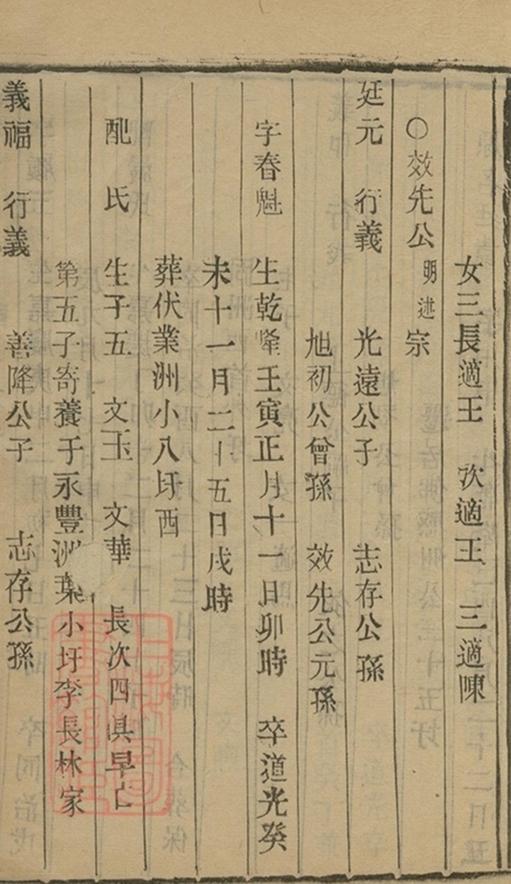 女三長適王 次適王 三適陳
○效先公明述宗
廷元 行義 光遠公子 志存公孫
旭初公曾孫 效先公元孫
字春魁 生乾隆壬寅正月十一日卯時 卒道光癸
未十一月二十五日戌時
葬伏業洲小八圩西
配氏 生子五 文玉 文華 長次四俱早亡
第五子寄養于永豐洲葉小圩李長林家
義福 行義 善降公子 志存公孫